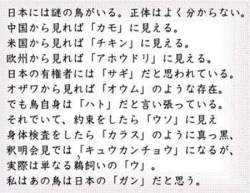 日本には謎の鳥がいる。正体はよく分からない。
中国から見れば「カモ」に見える。
米国から見れば「チキン」に見える。
欧州から見れば「アホウドリ」に見える。
日本の有権者には「サギ」だと思われている。
オザワから見れば「オウム」のような存在。
でも鳥自身は「ハト」だと言い張っている。
それでいて、約束をしたら「ウソ」に見え
身体検査をしたら「カラス」のように真っ黒、
釈明会見では「キュウカンチョウ」になるが、
実際は単なる鵜飼いの「ウ」。
私はあの鳥は日本の「ガン」だと思う。